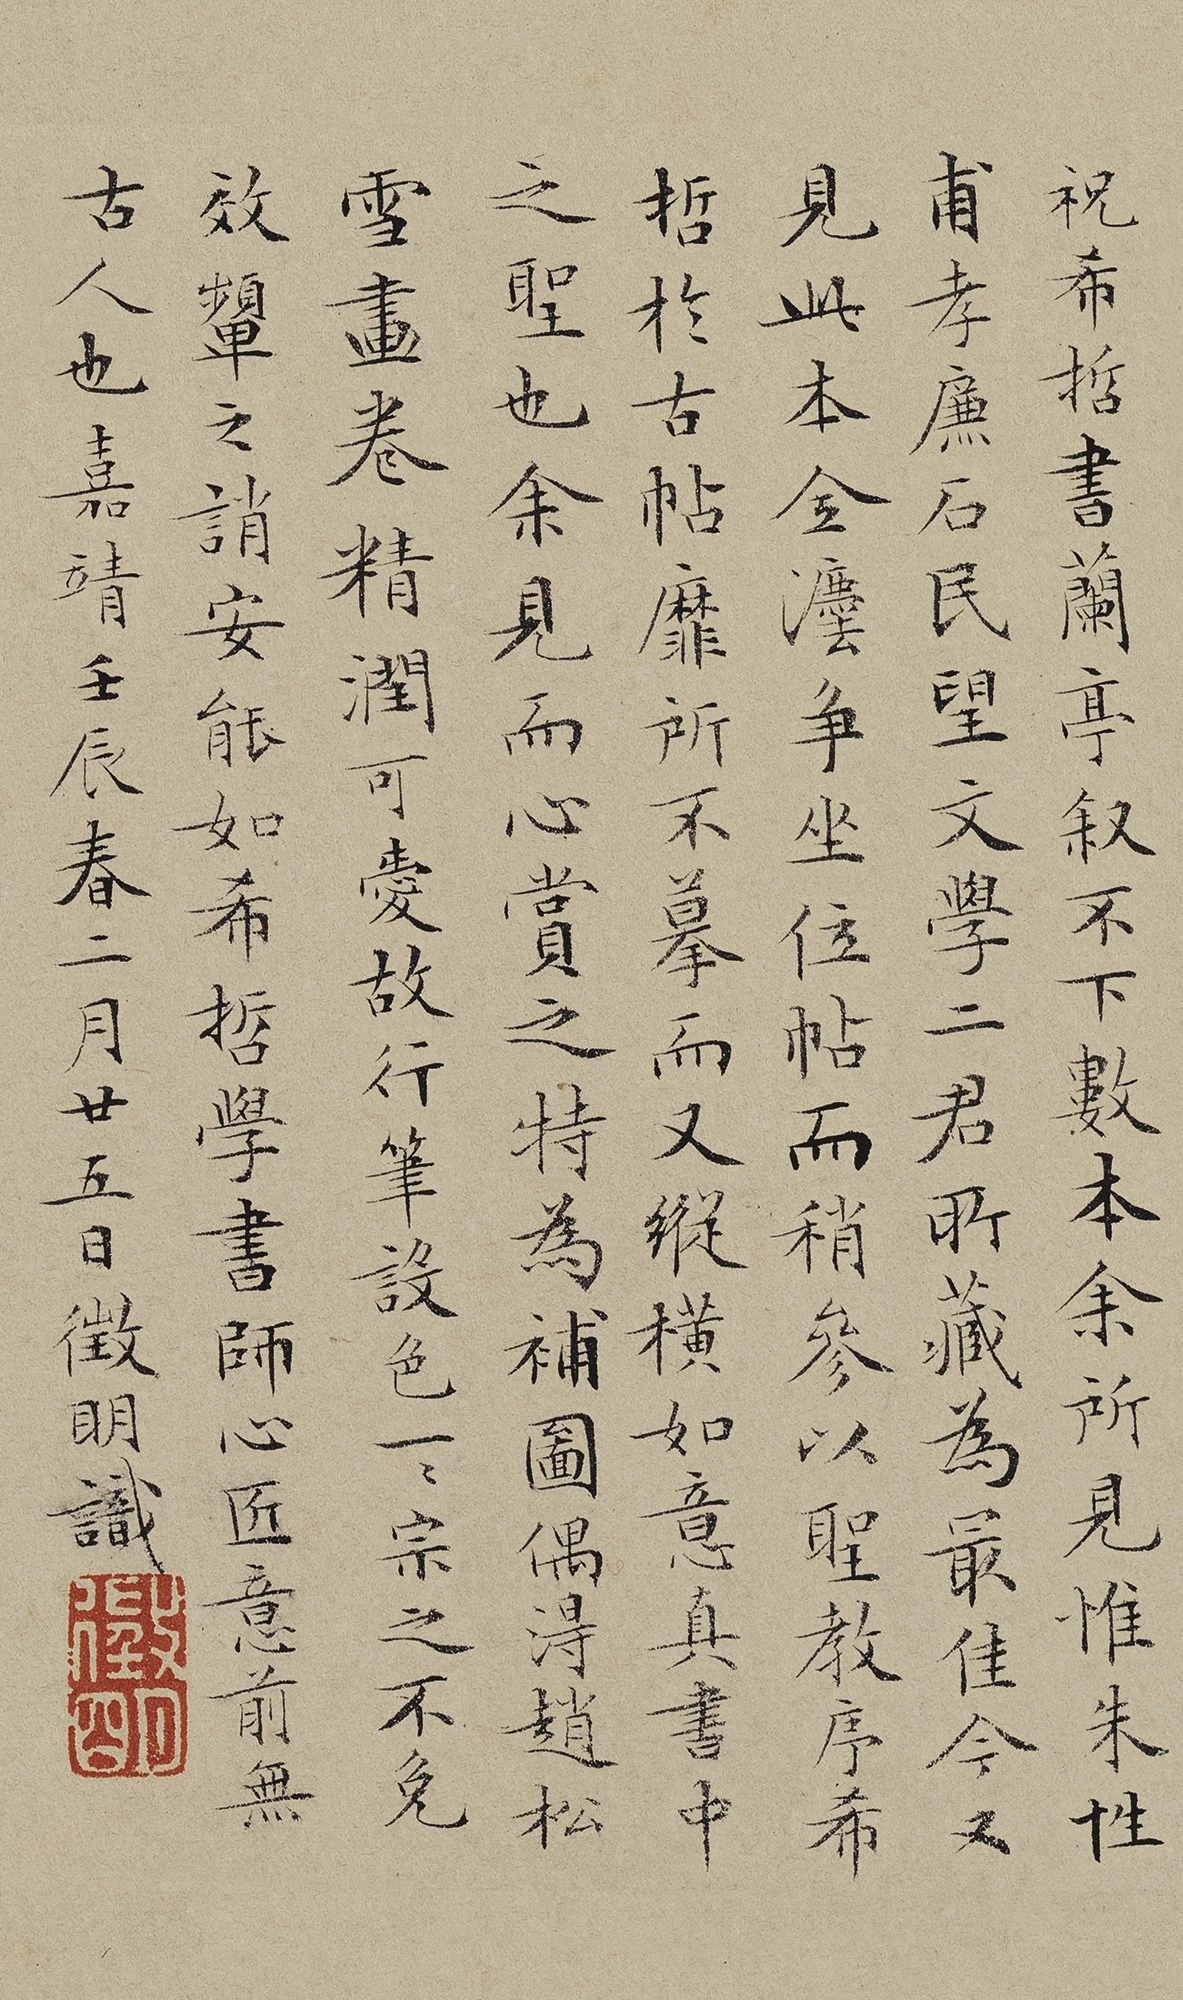 祝希哲書蘭亭叙不下數本余所見惟朱性
甫孝廉石民望文學二君所藏為最佳今又
見此本全灋爭坐位帖而稍參以聖教序希
哲於古帖靡所不摹而又縱橫如意真書中
之聖也余見而心賞之特為補圖偶得趙松
雪畫卷精潤可愛故行筆設色一〻宗之不免
效顰之誚安能如希哲學書師心匠意前無
古人也嘉靖壬辰春二月廿五日徵明識
徵明